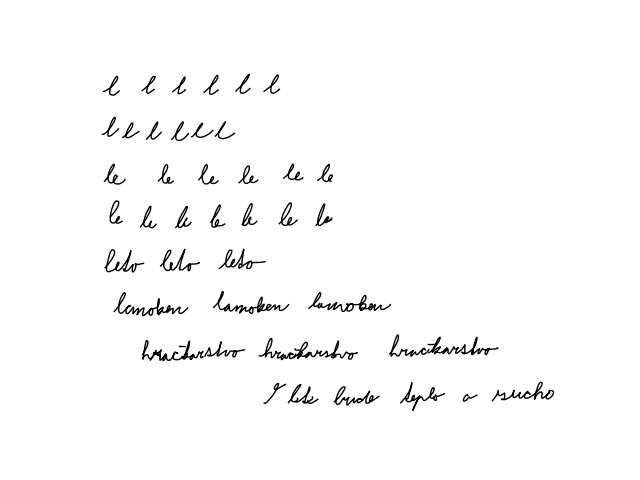 l l l l l l
l l l l l l
le le le le le le
le le le le le le le
leto leto leto
lamoken lamoken lamoken
hračkarstvo hračkarstvo hračkarstvo
bude teplo a sucho